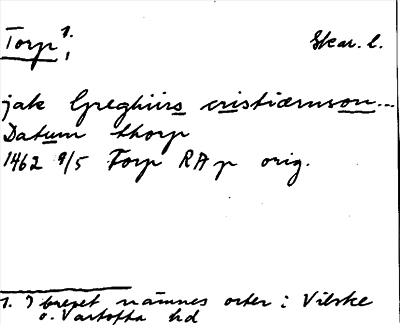 Torp 1. Skar. l.
jak Greghiirs cristiærnson...
Datum thorp
1462 9/5 Torp RAp orig.
1. I brevet nämnes orter i Vilske
o. Vartofta hd